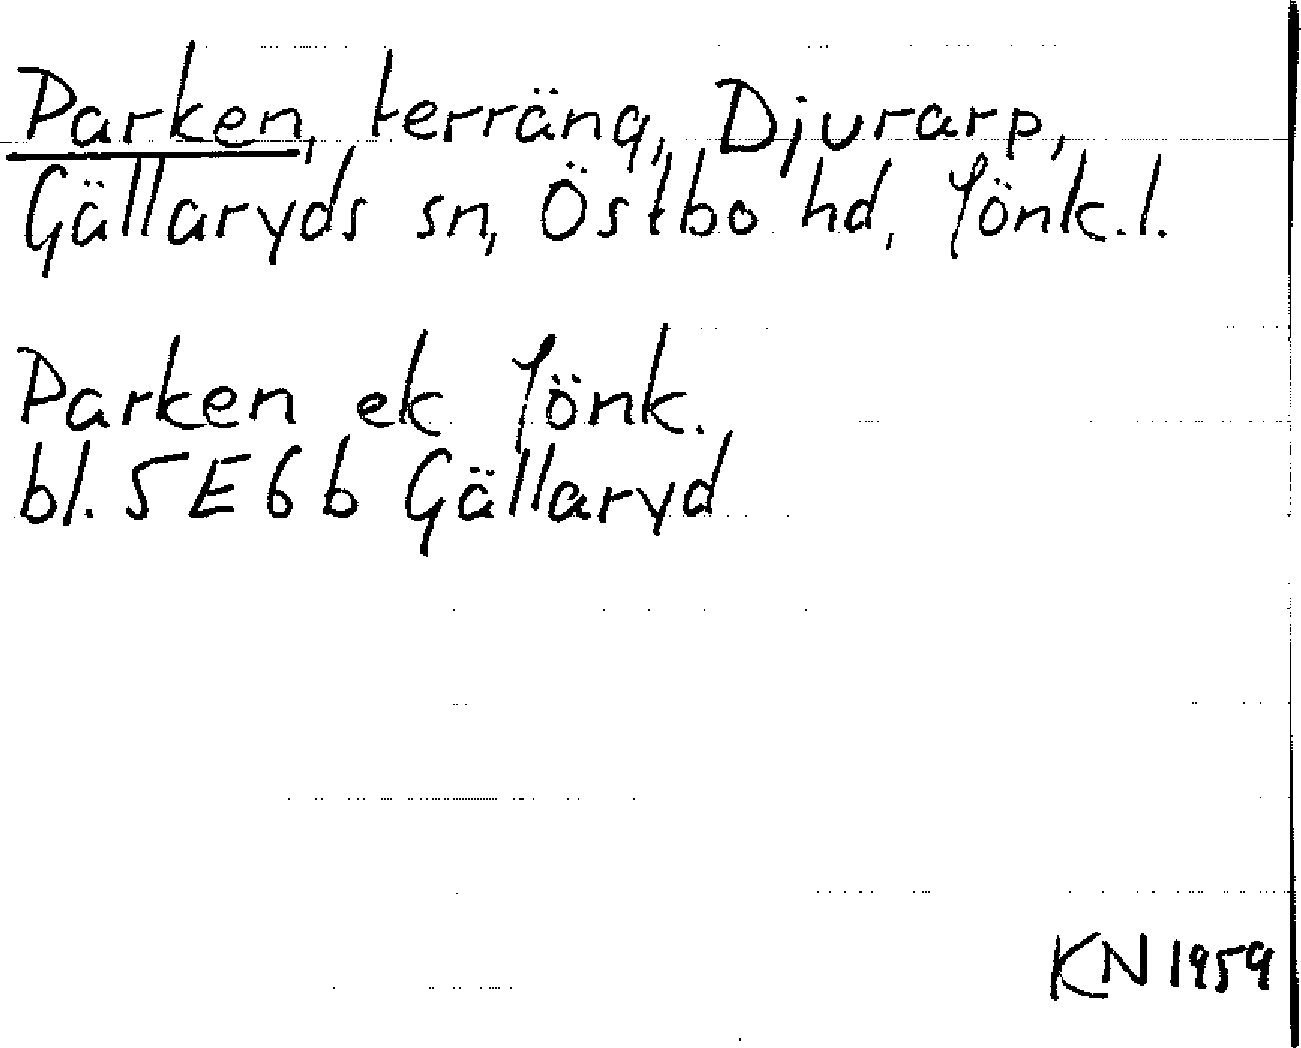 Parken, terräng, Djurarp,
Gällaryds sn, Östbo hd, Jönk.l.
Parken ek Jönk.
bl. 5E6b Gällaryd
KN 1959